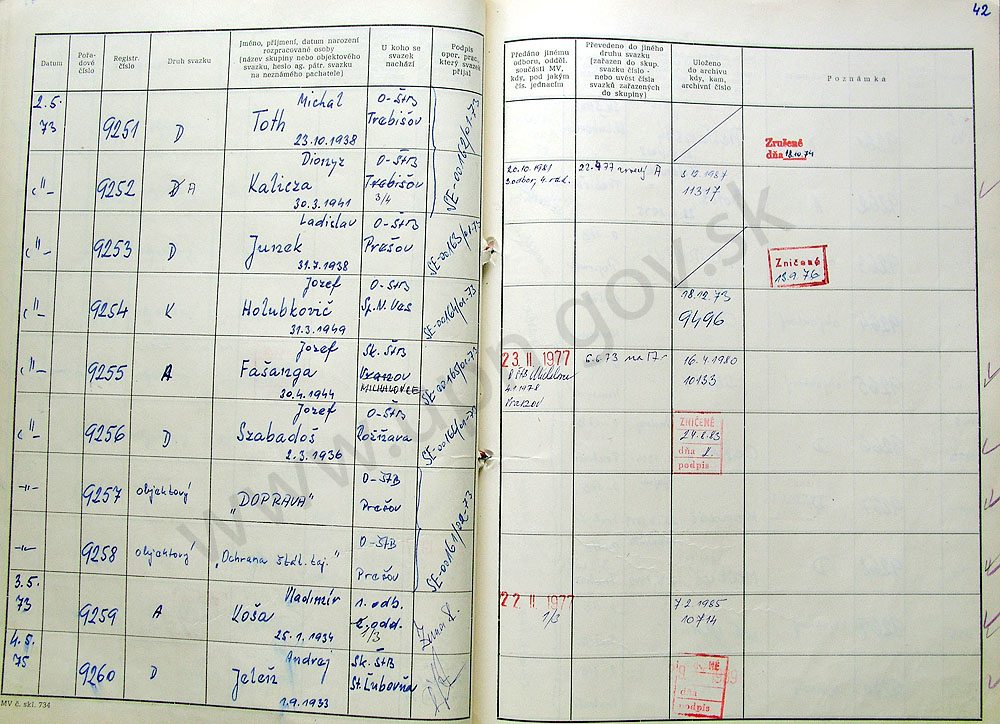 42
Datum
Pořa-
dové
číslo
Registr.
číslo
Druh svazku
Jméno, příjmení, datum narození
rozpracované osoby
(název skupiny nebo objektového
svazku, heslo ag. pátr. svazku
na neznámého pachatele)
U koho se
svazek
nachází
Podpis
oper. prac.,
který svazek
přijal
Předáno jinému
odboru, odděl.
součásti MV,
kdy, pod jakým
čís. jednacím
Převedeno do jiného
druhu svazku
(zařazen do skup.
svazku číslo -
nebo uvést čísla
svazků zařazených
do skupiny)
Uloženo
do archivu
kdy, kam,
archivní číslo
Poznámka
2.5.
73
9251
D
Michal
Toth
23.10.1938
O-ŠtB
Trebišov
SE-00162/01-73
Zrušené
dňa 18.10.74
-"-
9252
D A
Dionyz
Kalicza
30.3.1941
O-ŠtB
Trebišov
3/4
20.10.1981
3 odbor, 4.
A
3.12.1987
11317
-"-
9253
D
Ladislav
Junek
31.7.1938
O-ŠtB
Prešov
SE-00163/01-73
Zničené
13.9.76
-"-
9254
K
Jozef
Holubkovič
31.3.1949
O-ŠtB
Sp. N. Ves
SE-00164/01-73
18.12.73
9496
-"-
9255
A
Jozef
Fašanga
30.4.1944
Sk. ŠtB
MICHALOVCE
SE-00165/01-73
23. II. 1977
4.1.1978
6.6.73 na
16.4.1980
10133
-"-
9256
D
Jozef
Szabadoš
2.3.1936
O-ŠtB
Rožňava
ZNIČENÉ
24.8.83
dňa
podpis
-"-
9257
objektový
„DOPRAVA"
O-ŠTB
Prešov
SE-00161/02-73
-"-
9258
objektový
„Ochrana štát. taj."
O-ŠTB
Prešov
3.5.
73
9259
A
Vladimír
Koša
25.1.1934
1. odb.
1/3
22. II. 1977
1/3
7.2.1985
10714
4.5.
75
9260
D
Andrej
Jeleň
1.9.1933
Sk. ŠtB
St. Ľubovňa
dňa
podpis
MV č. skl. 734
www.upn.gov.sk